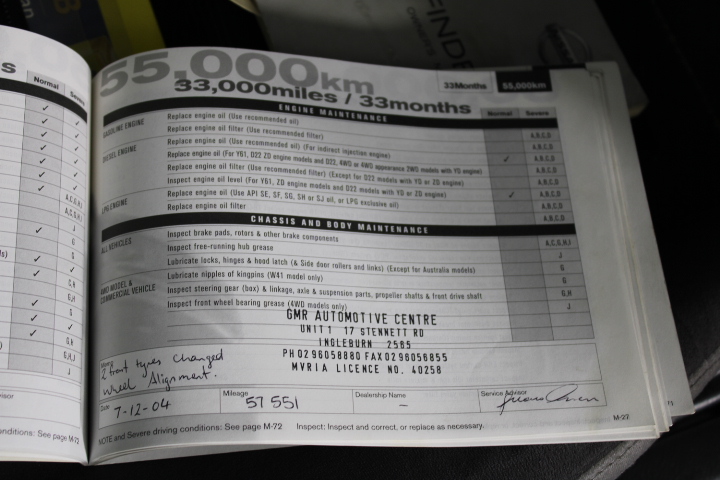 55,000km
33,000miles / 33months
33Months 55,000km
ENGINE MAINTENANCE Normal Severe
GASOLINE ENGINE Replace engine oil (Use recommended oil)
Replace engine oil filter (Use recommended filter) A,B,C,D
DIESEL ENGINE Replace engine oil (Use recommended oil) (For indirect injection engine) A,B,C,D
Replace engine oil (For Y61, D22 ZD engine models and D22, 4WD or 4WD appearance 2WD models with YD engine) ✓ A,B,C,D
Replace engine oil filter (Use recommended filter) (Except for D22 models with YD or ZD engine) A,B,C,D
Inspect engine oil level (For Y61, ZD engine models and D22 models with YD or ZD engine) A,B,C,D
LPG ENGINE Replace engine oil (Use API SE, SF, SG, SH or SJ oil, or LPG exclusive oil) ✓ A,B,C,D
Replace engine oil filter A,B,C,D
A,B,C,D
CHASSIS AND BODY MAINTENANCE
ALL VEHICLES Inspect brake pads, rotors & other brake components
Inspect free-running hub grease A,C,G,H,I
Lubricate locks, hinges & hood latch (& Side door rollers and links) (Except for Australia models) J
4WD MODEL & COMMERCIAL VEHICLE Lubricate nipples of kingpins (W41 model only) G
Inspect steering gear (box) & linkage, axle & suspension parts, propeller shafts & front drive shaft G,H
Inspect front wheel bearing grease (4WD models only) J
GMR AUTOMOTIVE CENTRE
UNIT 1 17 STENNETT RD
INGLEBURN 2565
PH 02 96058880 FAX 02 96056855
MVRIA LICENCE NO. 40258
2 front tyres changed
wheel Alignment.
Date 7-12-04 Mileage 57 551 Dealership Name – Service Advisor
NOTE and Severe driving conditions: See page M-72 Inspect: Inspect and correct, or replace as necessary.
M-27
Normal
conditions: See page M-72
FINDE